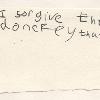 I sorgive the
donckey that